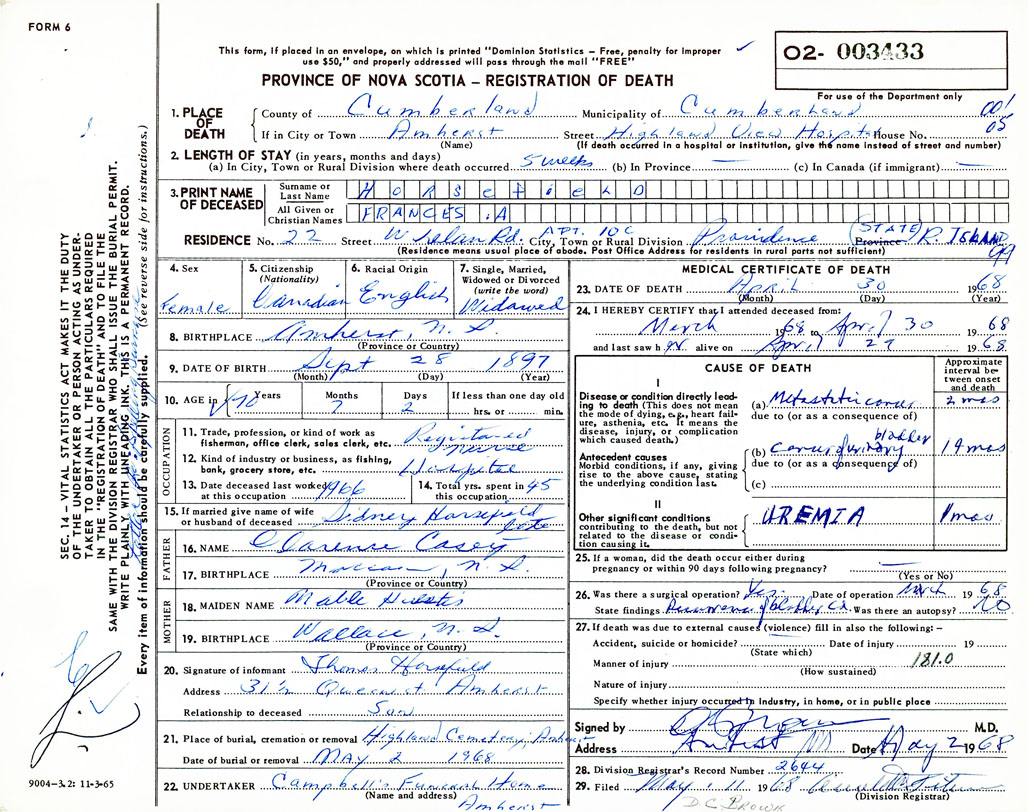 FORM 6
This form, if placed in an envelope, on which is printed "Dominion Statistics – Free, penalty for improper
use $50," and properly addressed will pass through the mail "FREE"
O2- 003433
PROVINCE OF NOVA SCOTIA – REGISTRATION OF DEATH
For use of the Department only
1. PLACE OF DEATH
County of Cumberland Municipality of Cumberland 001
If in City or Town Amherst Street Highland View Hospital House No. 05
(Name) (If death occurred in a hospital or institution, give the name instead of street and number)
2. LENGTH OF STAY (in years, months and days)
(a) In City, Town or Rural Division where death occurred 5 weeks (b) In Province — (c) In Canada (if immigrant) —
3. PRINT NAME OF DECEASED
Surname or Last Name HORSefieLD
All Given or Christian Names FRANCES .A
RESIDENCE No. 22 Street W Islan Rd. APT. 10C City, Town or Rural Division Providence (STATE) Province R. ISLAND
(Residence means usual place of abode. Post Office Address for residents in rural parts not sufficient) 99
4. Sex
Female
5. Citizenship
(Nationality)
Canadian
6. Racial Origin
English
7. Single, Married,
Widowed or Divorced
(write the word)
Widowed
8. BIRTHPLACE Amherst, N.S.
(Province or Country)
9. DATE OF BIRTH Sept 28 1897
(Month) (Day) (Year)
10. AGE in 70 Years
Months 7
Days 2
If less than one day old
hrs. or min.
OCCUPATION
11. Trade, profession, or kind of work as
fisherman, office clerk, sales clerk, etc. Registered nurse
12. Kind of industry or business, as fishing,
bank, grocery store, etc. Hospital
13. Date deceased last worked
at this occupation 1966
14. Total yrs. spent in
this occupation 45
15. If married give name of wife
or husband of deceased Sidney Horsefield late
FATHER
16. NAME Clarence Casey
17. BIRTHPLACE Maccan, N.S.
(Province or Country)
MOTHER
18. MAIDEN NAME Mable
19. BIRTHPLACE Wallace, N.S.
(Province or Country)
20. Signature of informant Thomas Horsefield
Address 31½ Queen st Amherst
Relationship to deceased Son
21. Place of burial, cremation or removal Highland Cemetery, Amherst
Date of burial or removal MAY 2 1968
22. UNDERTAKER Campbell's Funeral Home
(Name and address) Amherst
MEDICAL CERTIFICATE OF DEATH
23. DATE OF DEATH April 30 1968
(Month) (Day) (Year)
24. I HEREBY CERTIFY that I attended deceased from:
March 1968 to April 30 1968
and last saw her alive on April 29 1968
CAUSE OF DEATH
Approximate
interval be-
tween onset
and death
I
Disease or condition directly lead-
ing to death (This does not mean
the mode of dying, e.g., heart fail-
ure, asthenia, etc. It means the
disease, injury, or complication
which caused death.)
(a) Metastatic cancer 2 mos
due to (or as a consequence of)
Antecedent causes
Morbid conditions, if any, giving
rise to the above cause, stating
the underlying condition last.
(b) Cancer of urinary bladder 14 mos
due to (or as a consequence of)
(c)
II
Other significant conditions
contributing to the death, but not
related to the disease or condi-
tion causing it.
UREMIA 1 mos
25. If a woman, did the death occur either during
pregnancy or within 90 days following pregnancy? —
(Yes or No)
26. Was there a surgical operation? Yes. Date of operation March 1968
State findings Recurrence of bladder Ca. Was there an autopsy? NO
27. If death was due to external causes (violence) fill in also the following: –
Accident, suicide or homicide? Date of injury 19
(State which)
Manner of injury 181.0
(How sustained)
Nature of injury
Specify whether injury occurred in industry, in home, or in public place
Signed by M.D.
Address Amherst NS Date May 2 1968
28. Division Registrar's Record Number 2644
29. Filed May 11 1968
(Division Registrar)
D C BROWN
SEC. 14 – VITAL STATISTICS ACT MAKES IT THE DUTY
OF THE UNDERTAKER OR PERSON ACTING AS UNDER-
TAKER TO OBTAIN ALL THE PARTICULARS REQUIRED
IN THE "REGISTRATION OF DEATH" AND TO FILE THE
SAME WITH THE DIVISION REGISTRAR WHO SHALL ISSUE THE BURIAL PERMIT.
WRITE PLAINLY WITH UNFADING INK. THIS IS A PERMANENT RECORD.
Every item of information should be carefully supplied. (See reverse side for instructions.)
9004–3.2: 11-3-65